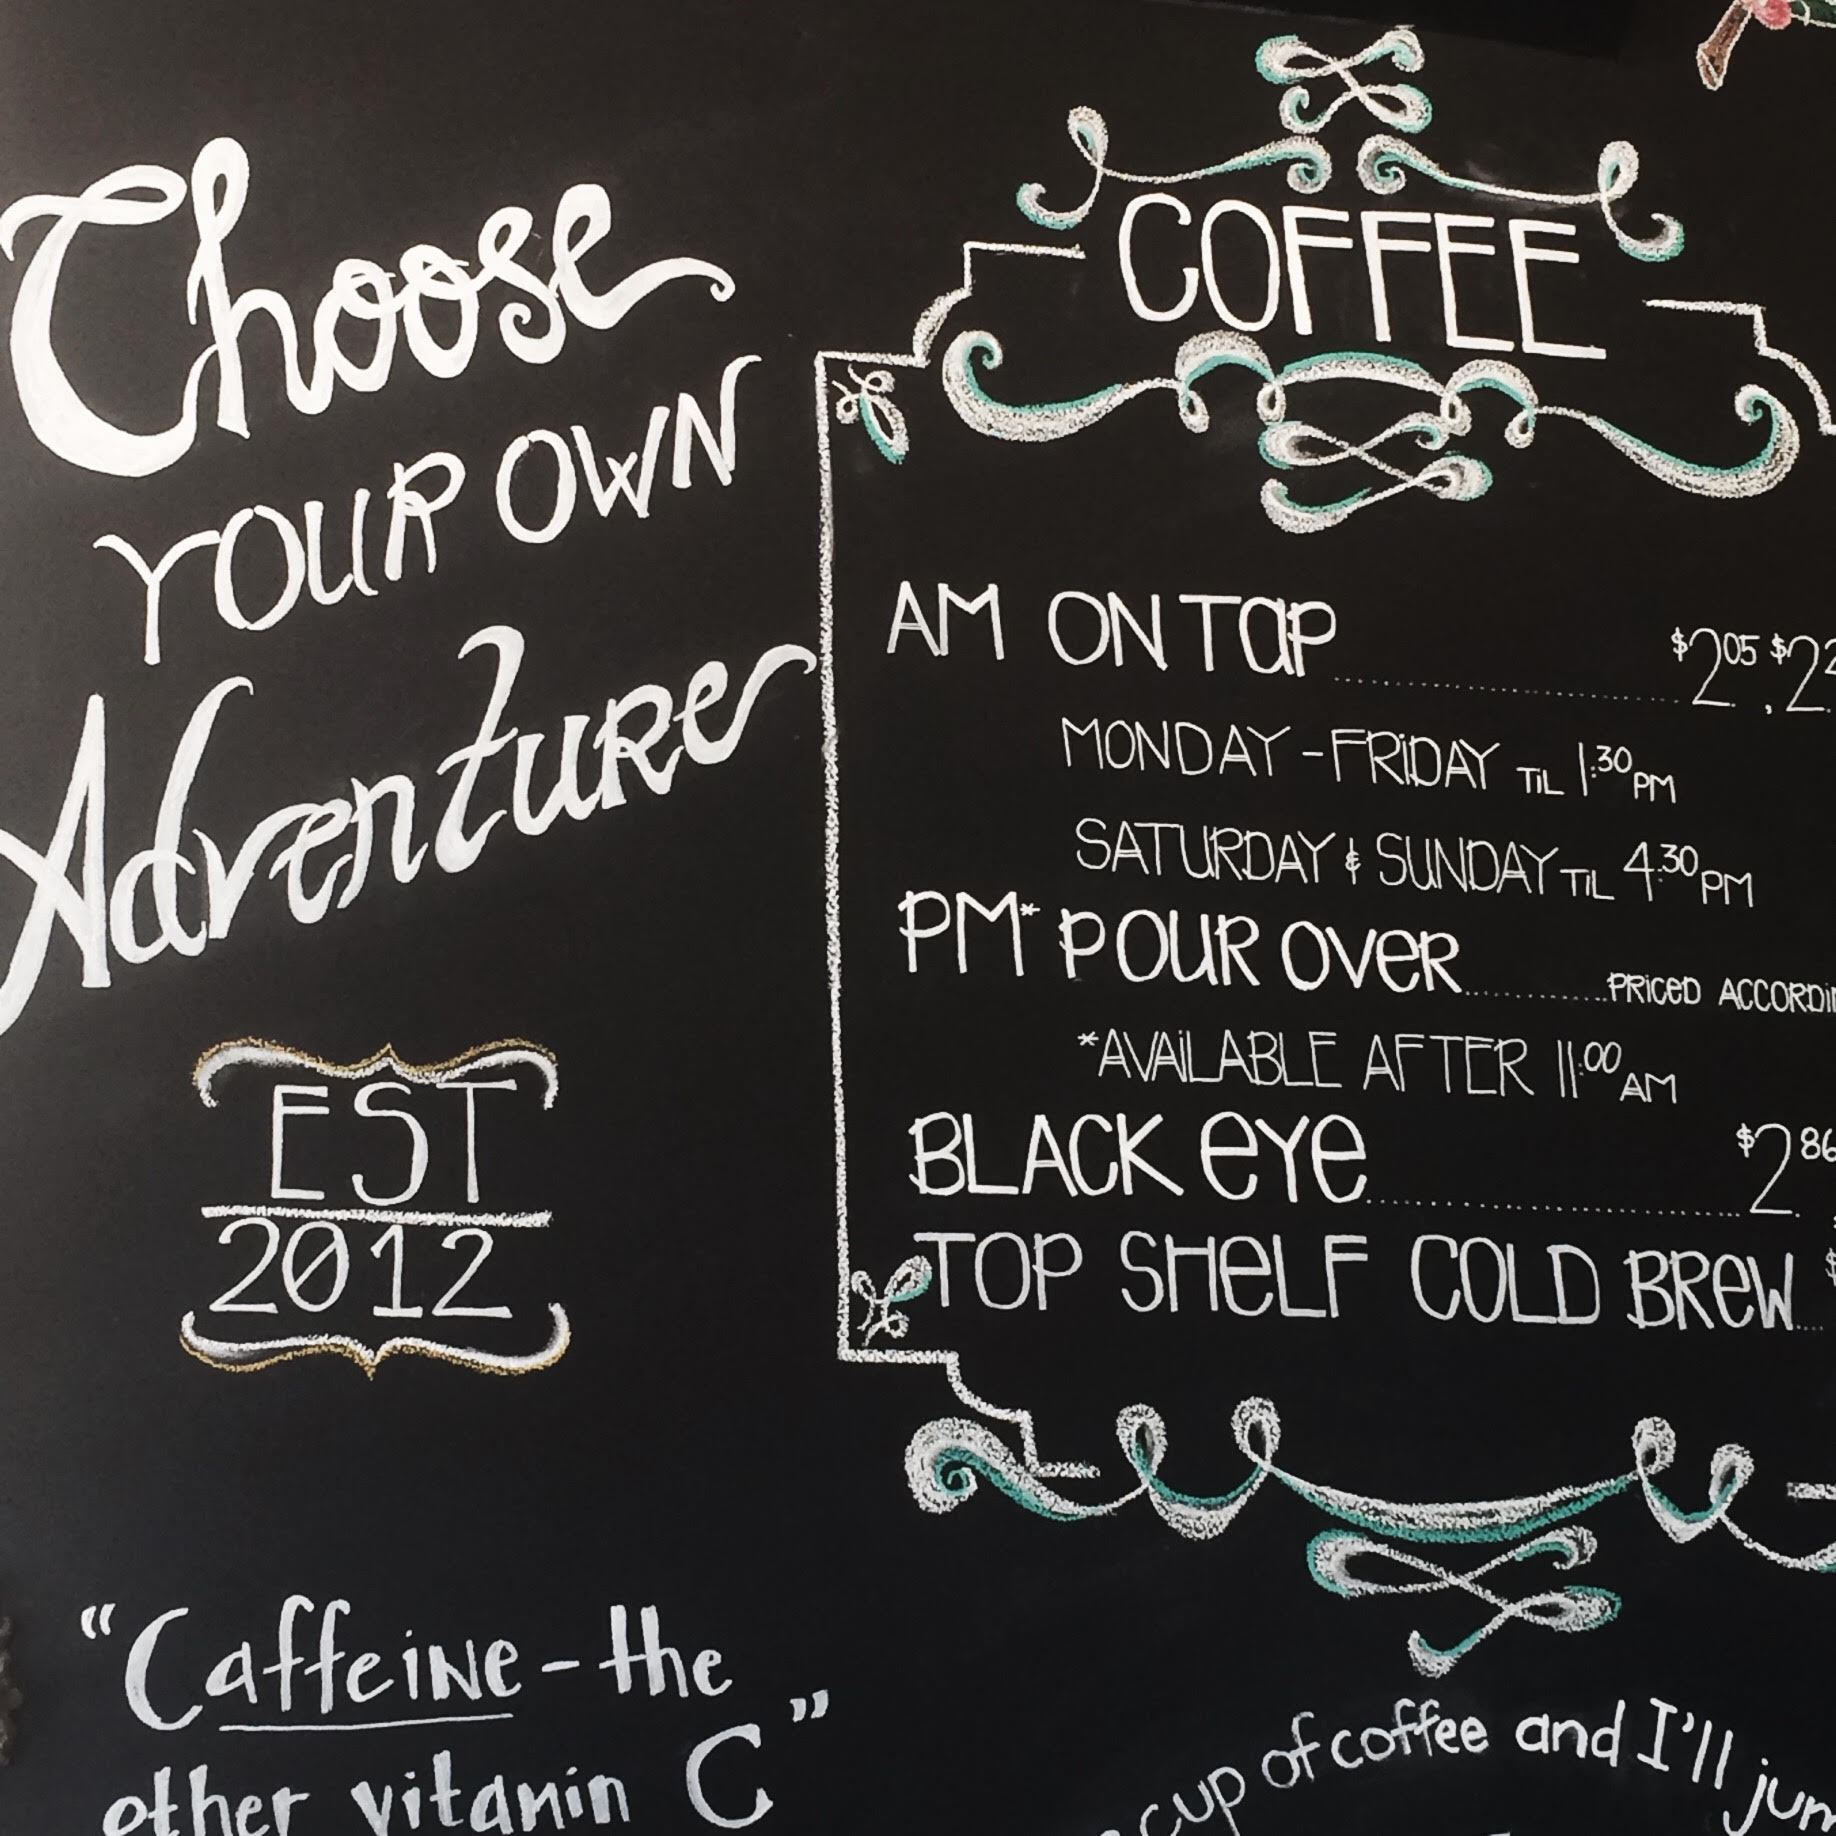 Choose
YOUR OWN
Adventure
EST
2012
"Caffeine - the
other vitamin C"
COFFEE
AM ON TAP $2.05, $2.2
MONDAY - FRIDAY TIL 1:30 PM
SATURDAY & SUNDAY TIL 4:30 PM
PM* POUR OVER PRICED
*AVAILABLE AFTER 11:00 AM
BLACK EYE $2.86
TOP SHELF COLD BREW $
cup of coffee and I'll